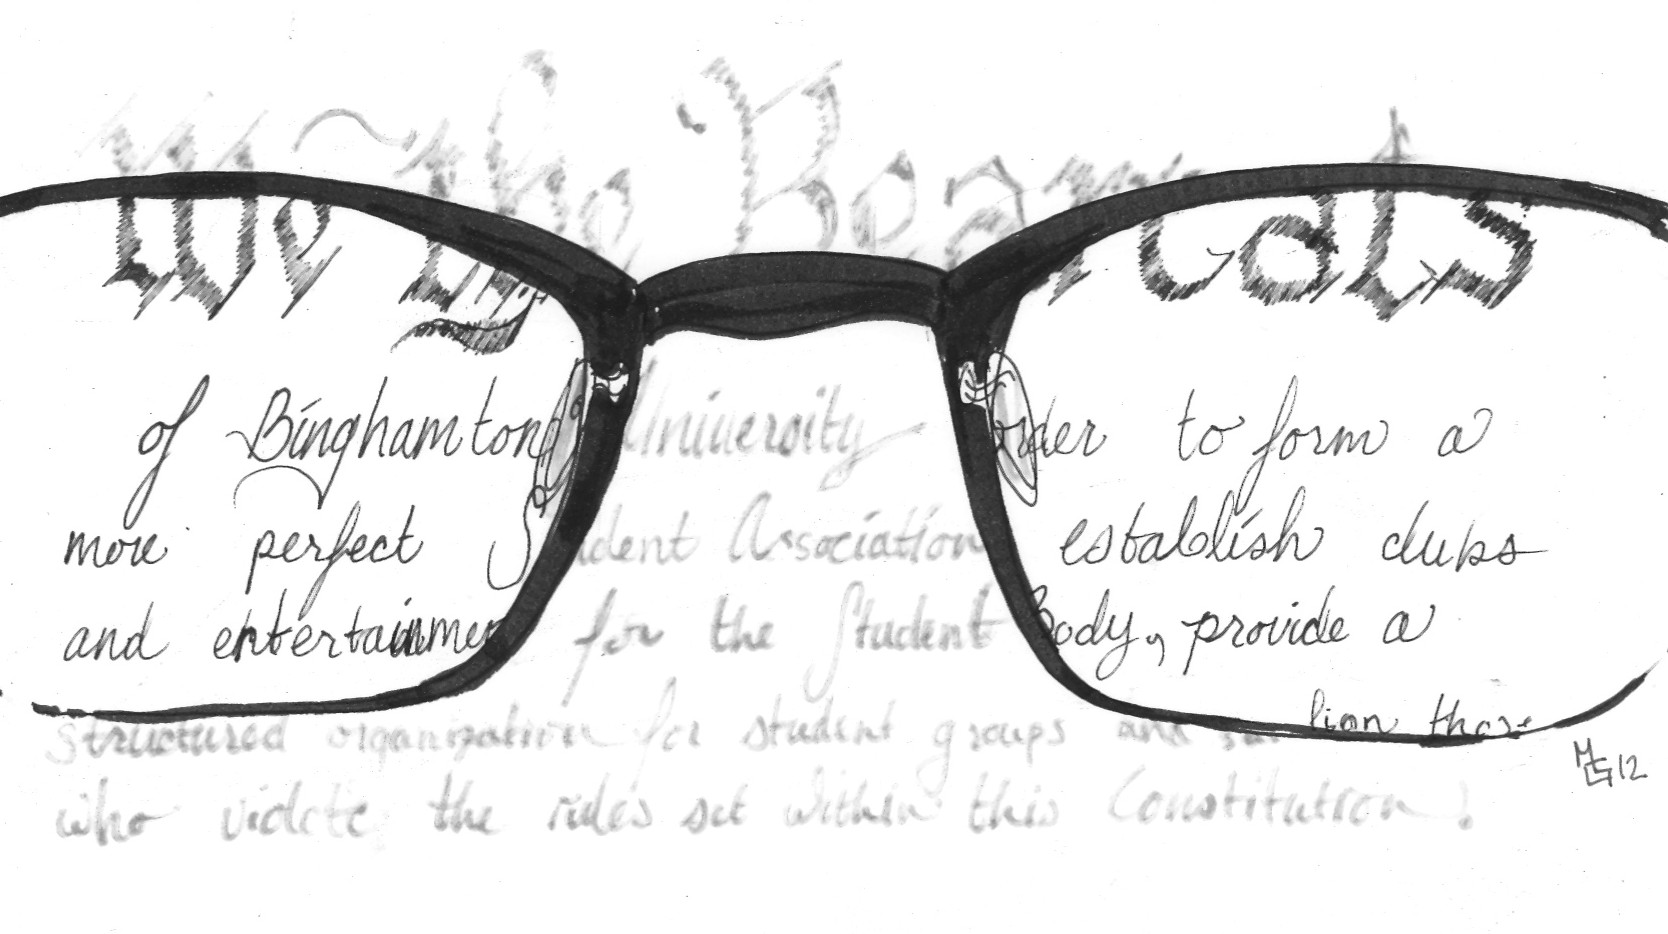 We the Bearcats
of Binghamton University order to form a
more perfect Student Association establish clubs
and entertainment for the Student Body, provide a
structured organization for student groups and those
who violate the rules set within this Constitution!
MG12